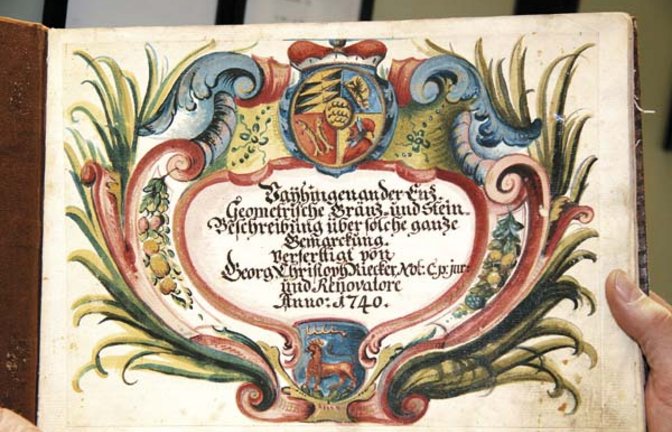 Vaÿhingen an der Enz.
Geometrische Gränz- und Stein-
Beschreibung über solche ganze
Bemarckung.
verferttigt von
Georg Christoph Riecker, Not: C. p. jur:
und Renovatore
Anno: 1740.